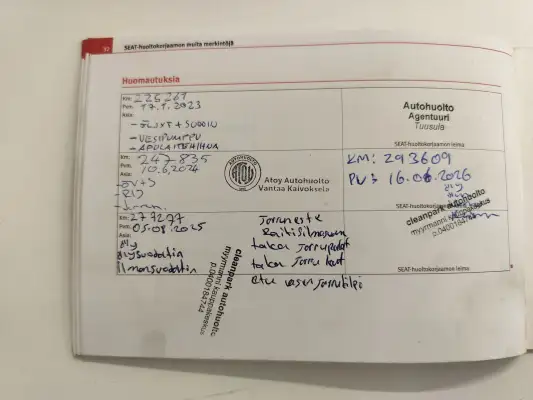 32
SEAT-huoltokorjaamon muita merkintöjä
Huomautuksia
Km: 225 269
Pvm: 17.1.2023
Asia:
- VESIPUMPPU
- APULAITEHIHNA
Autohuolto
Agentuuri
Tuusula
SEAT-huoltokorjaamon leima
Km: 247 835
Pvm: 10.6.2024
Asia:
AUTOHUOLTO
Atoy Autohuolto
Vantaa Kaivoksela
KM: 293609
PVM: 16.06.2026
öljy
cleanpark autohuolto
myyrmanni
p.0400184744
SEAT-huoltokorjaamon leima
Km: 277297
Pvm: 05.08.2025
Asia:
öljy
öljysuodatin
Ilmansuodatin
Jarruneste
Raitisilmasuod
taka Jarrupalat
taka Jarru
etu vasen Jarru
cleanpark autohuolto
myyrmanni kauppakeskus
p.0400184744
SEAT-huoltokorjaamon leima